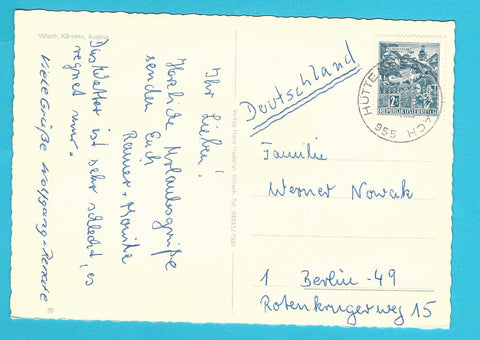 Villach, Kärnten, Austria
Ihr Lieben!
Herzliche Urlaubsgrüße
senden Euch
Rainer + Monika
Das Wetter ist sehr schlecht, es
regnet nur.
Viele Grüße Wolfgang + Renate
Deutschland
Familie
Werner Nowak
1 Berlin -49
Rotenkrugerweg 15
REPUBLIK ÖSTERREICH
HÜTTE
955
Villach, Tel. 04242/7335